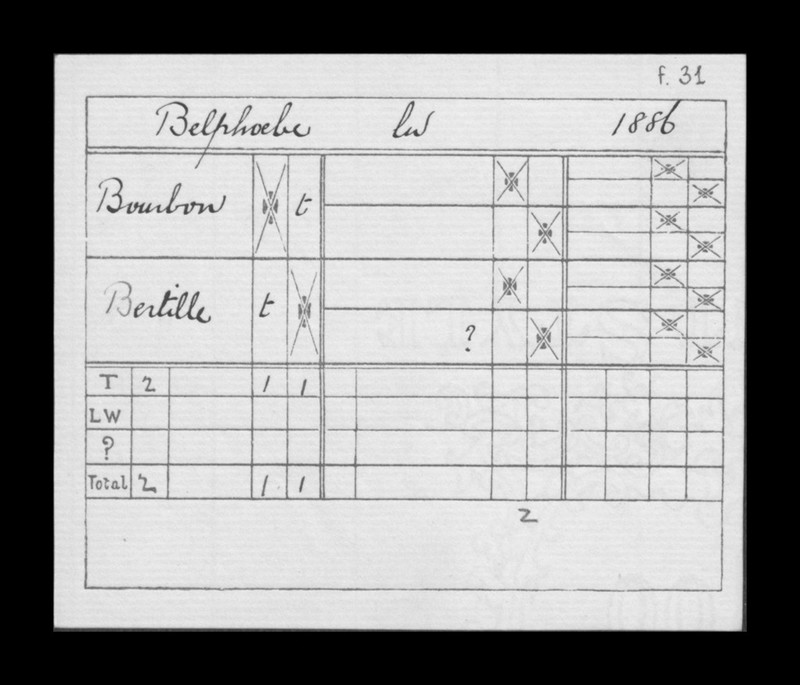 f. 31
Belphoebe lw 1886
Bourbon t
Bertille t
?
T 2 1 1
LW
?
Total 2 1 1
2